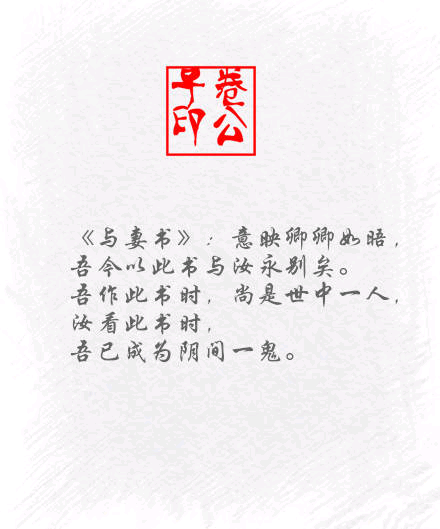 卷公
早印
《与妻书》：意映卿卿如晤，
吾今以此书与汝永别矣。
吾作此书时，尚是世中一人，
汝看此书时，
吾已成为阴间一鬼。